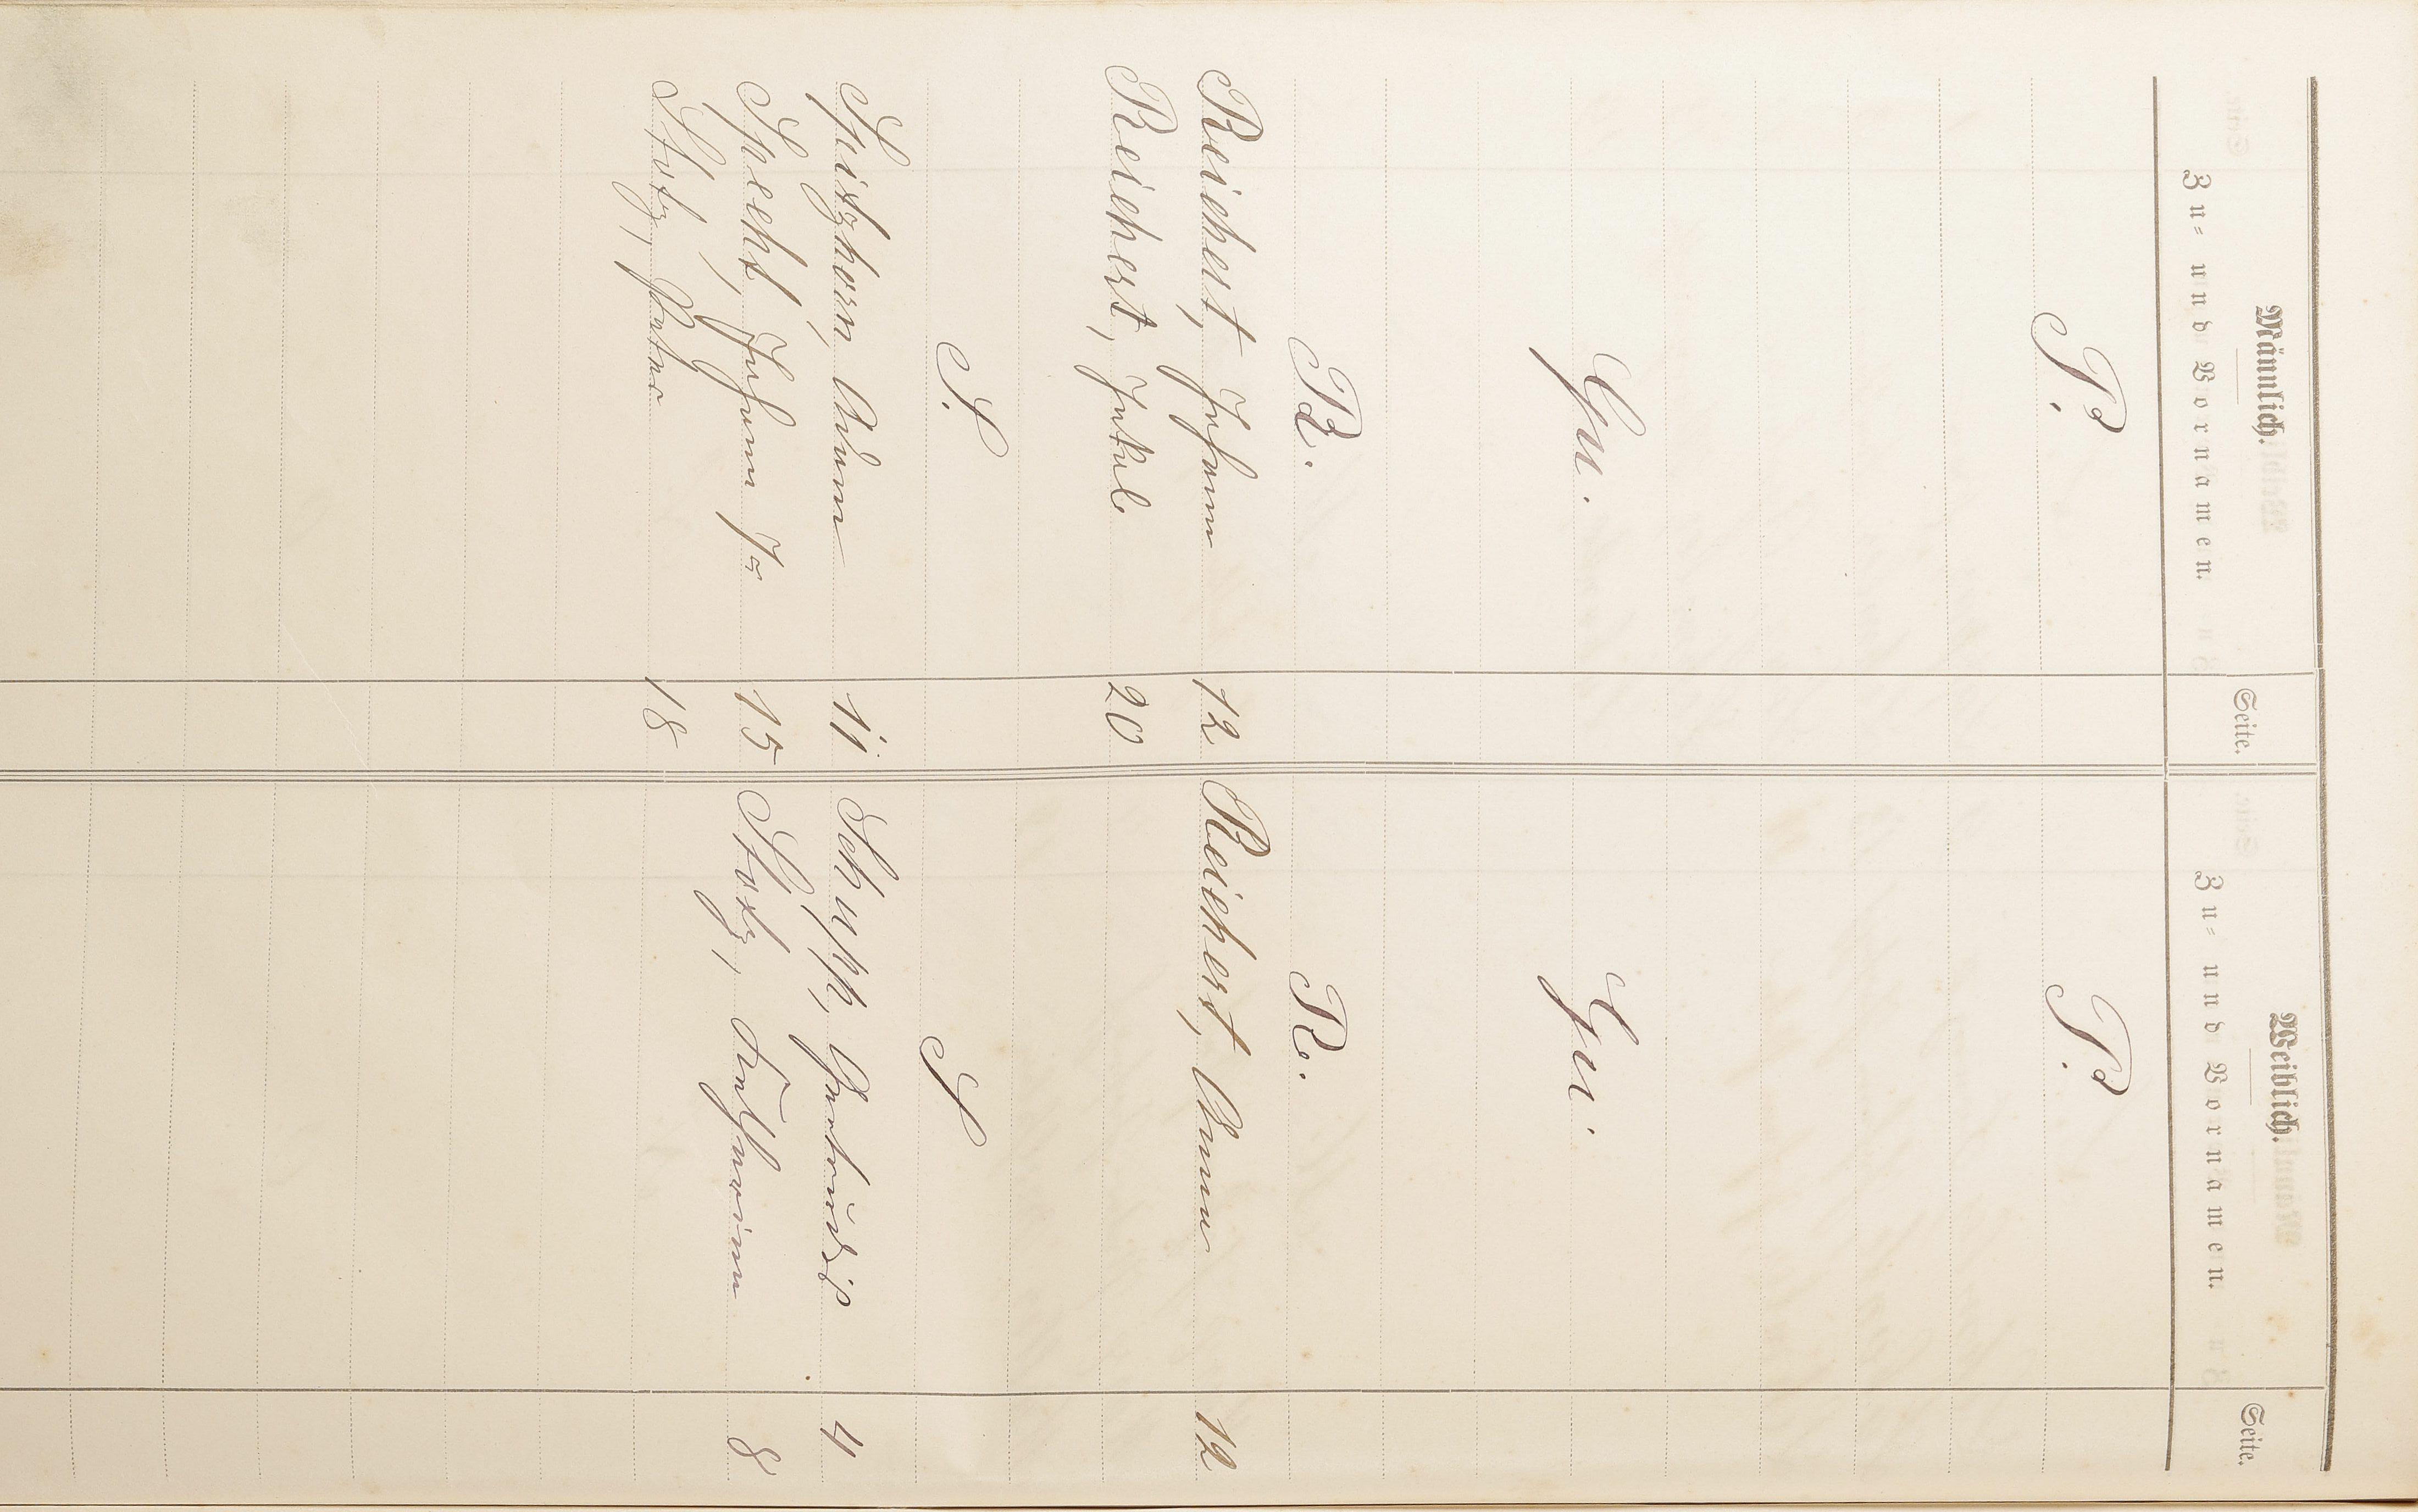 Männlich.
Zu- und Vornamen.
Seite.
P.
Qu.
R.
Reichert, Johann 12
Reichert, Jakob 20
S.
Spitzhorn, Adam 11
Specht, Johann 15
Stotz, Peter 18
Weiblich.
Zu- und Vornamen.
Seite.
P.
Qu.
R.
Reichert, Anna 12
S
Schupp, Gertrudis 4
Stotz, Katharina 8